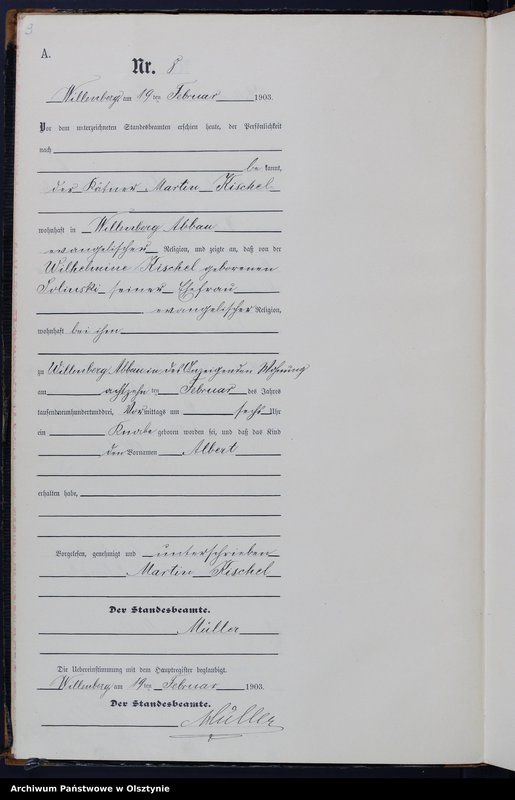 3
A.
Nr. 8
Willenberg am 19 ten Februar 1903.
Vor dem unterzeichneten Standesbeamten erschien heute, der Persönlichkeit
nach
be kannt,
der Kätner Martin Kischel
wohnhaft in Willenberg Abbau
evangelischer Religion, und zeigte an, daß von der
Wilhelmine Kischel geborenen
Solinski seiner Ehefrau
evangelischer Religion,
wohnhaft bei ihm
zu Willenberg Abbau in des Anzeigenden Wohnung
am achtzehn ten Februar des Jahres
tausendneunhundertunddrei, Vor mittags um sechs Uhr
ein Knabe geboren worden sei, und daß das Kind
den Vornamen Albert
erhalten habe,
Vorgelesen, genehmigt und unterschrieben
Martin Kischel
Der Standesbeamte.
Müller
Die Uebereinstimmung mit dem Hauptregister beglaubigt.
Willenberg am 19 ten Februar 1903.
Der Standesbeamte.
Müller
Archiwum Państwowe w Olsztynie